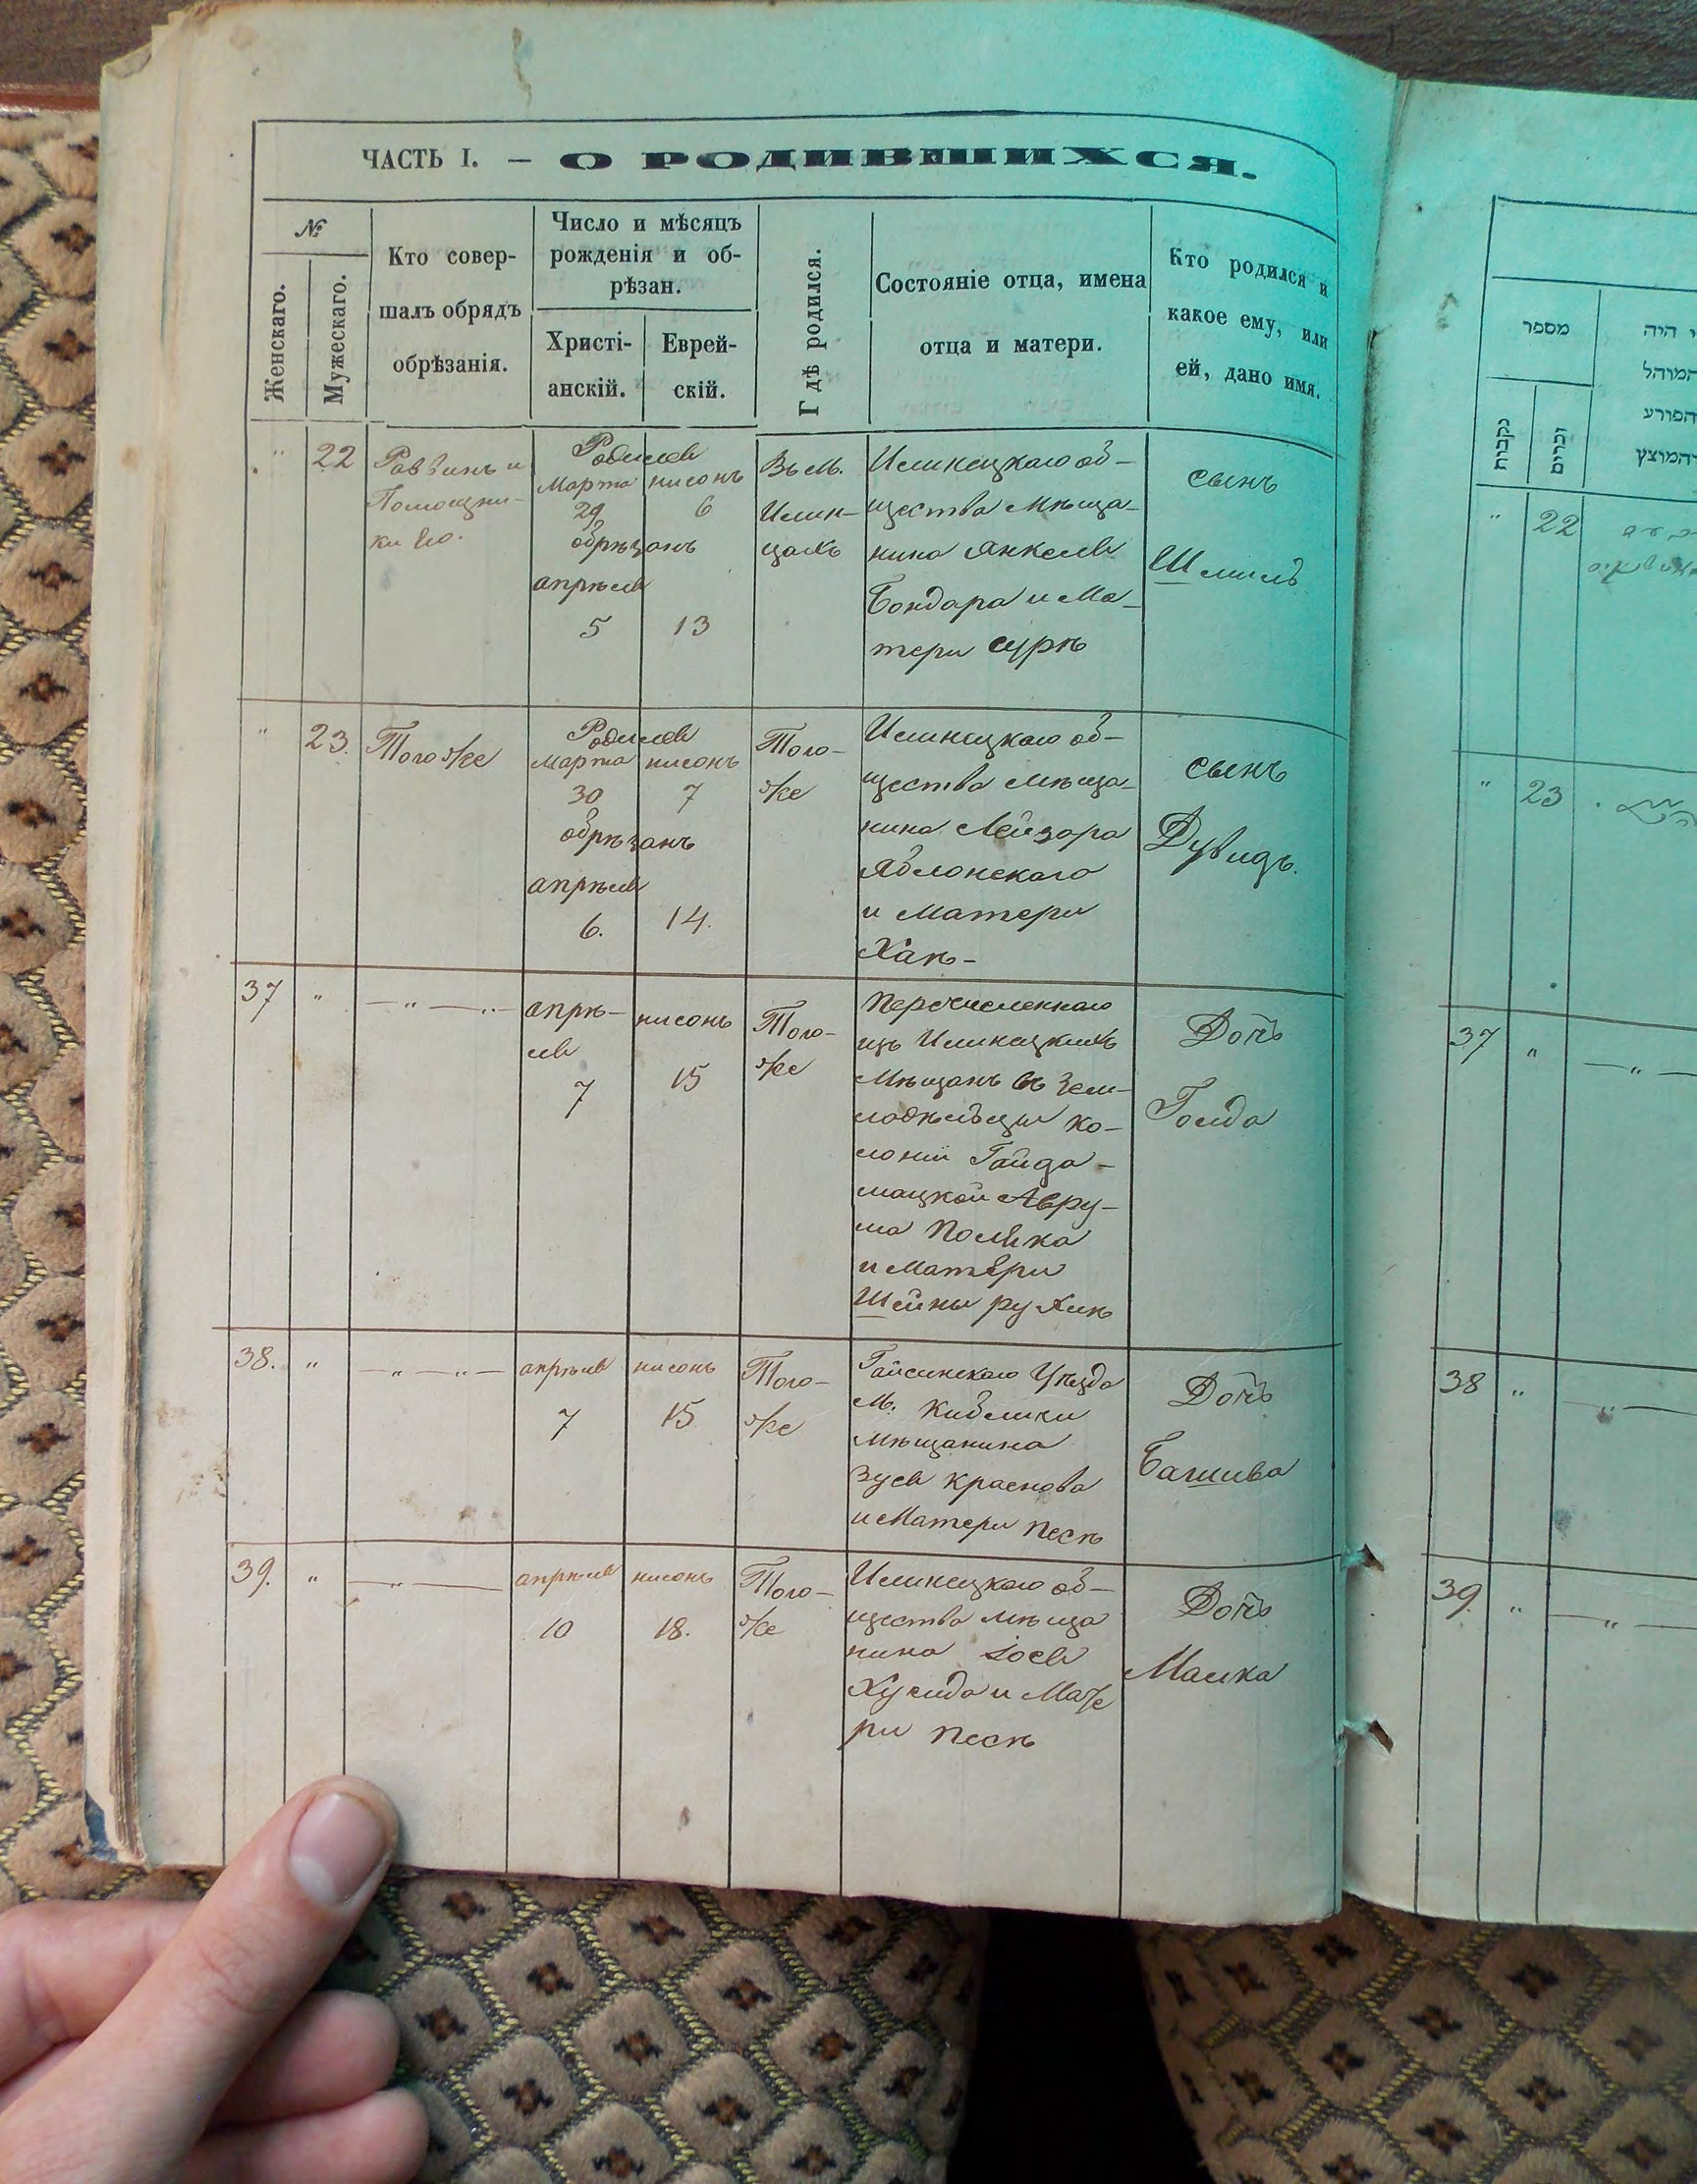 ЧАСТЬ I. — О РОДИВШИХСЯ.
№
Женскаго.
Мужескаго.
Кто совер-
шалъ обрядъ
обрѣзанія.
Число и мѣсяцъ
рожденія и об-
рѣзан.
Христі-
анскій.
Еврей-
скій.
Гдѣ родился.
Состояніе отца, имена
отца и матери.
Кто родился и
какое ему, или
ей, дано имя.
" 22
Раввинъ и
Помощни-
ки его.
Родился
Марта нисонъ
29 6
обрѣзанъ
апрѣля
5 13
Въ М.
Илин-
цахъ
Илинецкаго об-
щества мѣща-
нина Янкеля
Бондара и Ма-
тери Сурѣ
сынъ
Шмиль
" 23.
Того же
Родился
марта нисонъ
30 7
обрѣзанъ
апрѣля
6. 14.
Того-
же
Илинецкаго об-
щества мѣща-
нина Лейзора
Яблонскаго
и Матери
Хаѣ-
сынъ
Дувидъ.
37 "
— " — " —
апрѣ-
ля
7
нисонъ
15
Того-
же
Перечисленнаго
изъ Илинецкихъ
Мѣщанъ въ Зем-
лодѣльцы ко-
лоніи Гайда-
мацкой Авру-
ма Поляка
и Матери
Шейны рухлѣ
Дочь
Голда
38. "
— " — " —
апрѣля
7
нисонъ
15
Того-
же
Гайсинскаго Уѣзда
М. Кибличи
Мѣщанина
Зуся Краснова
и Матери Песѣ
Дочь
Башива
39. "
— " —
апрѣля
10
нисонъ
18.
Того-
же
Илинецкаго об-
щества мѣща
нина Іося
и Мате
ри Песѣ
Дочь
Малка
מספר
נקבות
זכרים
י היה
המוהל
הפורע
והמוצץ
" 22
" 23
37 "
— " —
38 "
— " —
39. "
— " —